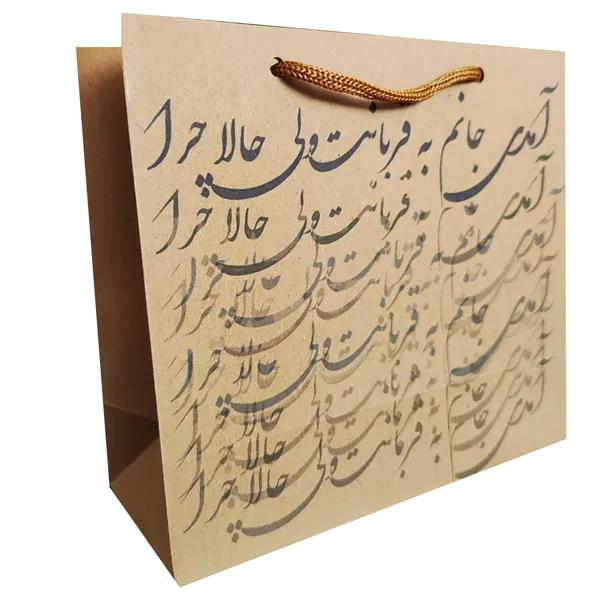 آمدی جانم به قربانت ولی حالا چرا
آمدی جانم به قربانت ولی حالا چرا
آمدی جانم به قربانت ولی حالا چرا
آمدی جانم به قربانت ولی حالا چرا
آمدی جانم به قربانت ولی حالا چرا
آمدی جانم به قربانت ولی حالا چرا
آمدی جانم به قربانت ولی حالا چرا